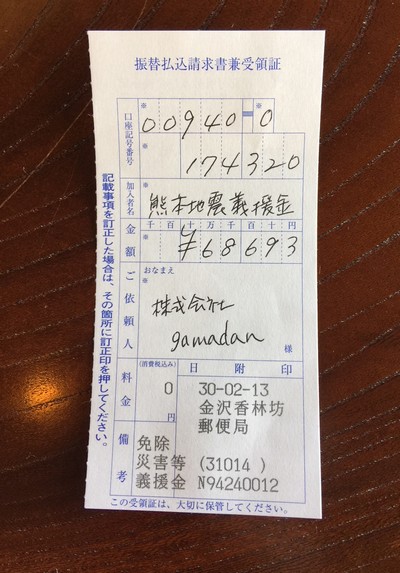 振替払込請求書兼受領証
口座記号番号
※
00940-0
※
174320
加入者名
※
熊本地震義援金
金額
千百十万千百十円
※
¥68693
ご依頼人
おなまえ
※
株式会社
gamadan
様
料金
(消費税込み)
0
円
日附印
30-02-13
金沢香林坊
郵便局
備考
免除
災害等 (31014 )
義援金 N94240012
この受領証は、大切に保管してください。
記載事項を訂正した場合は、その箇所に訂正印を押してください。